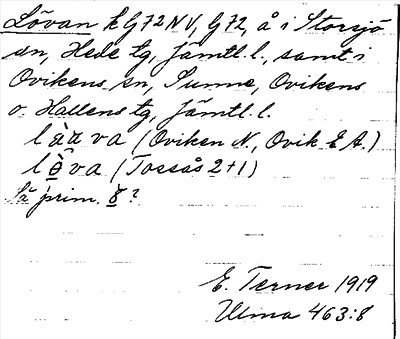 Lövan k G 72 NV, G 72, å i Storsjö
sn, Hede tg, Jämtl. l., samt i
Ovikens sn, Sunne, Ovikens
o. Hallens tg, Jämtl. l.
va (Oviken N., Ovik. E A.)
va (Tossås 2+1)
prim. ?
E. Terner 1919
Ulma 463:8